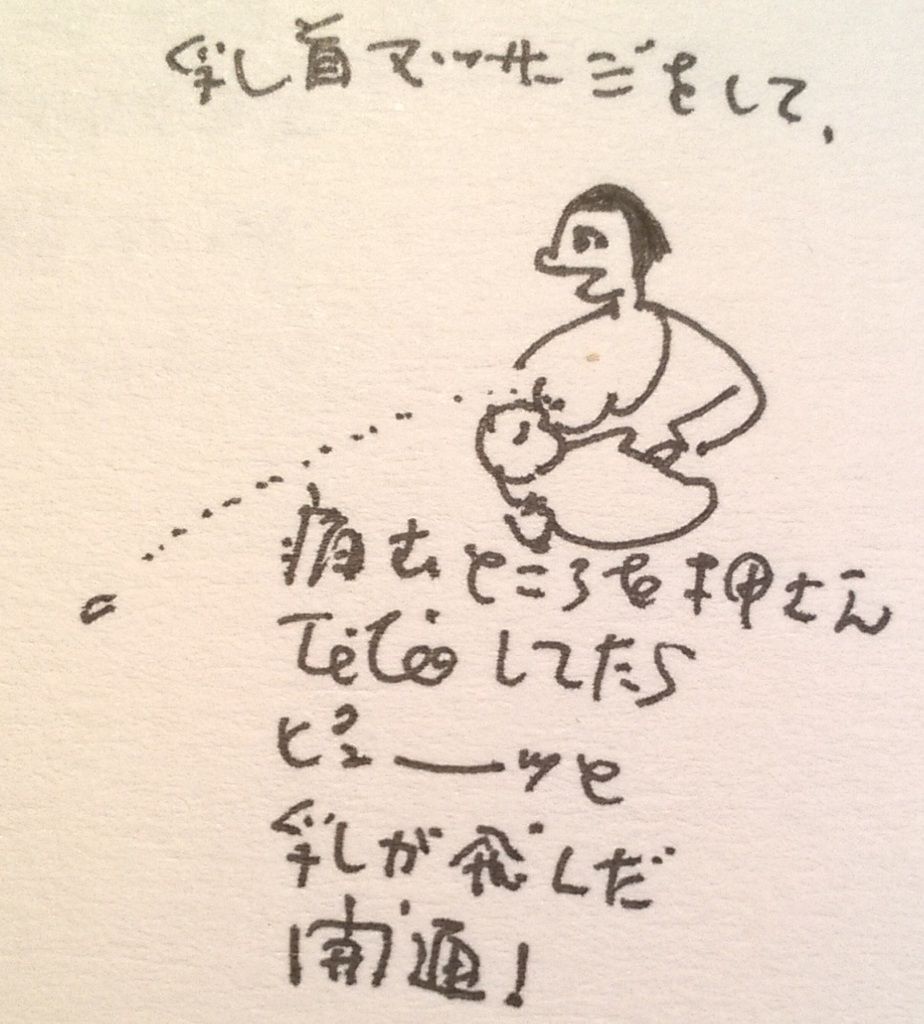 乳首マッサージをして、
痛むところを押さえ
してたら
ピューッと
乳が飛んだ
開通！